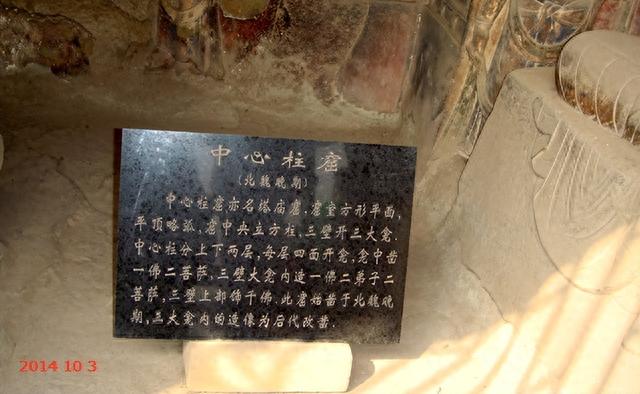 中心柱窟
(北魏晚期)
中心柱窟亦名塔庙窟.窟室方形平面,
平顶略弧.窟中央立方柱,三壁开三大龛.
中心柱分上下两层,每层四面开龛,龛中凿
一佛二菩萨.三壁大龛内造一佛二弟子二
菩萨,三壁上部饰千佛.此窟始凿于北魏晚
期,三大龛内的造像为后代改凿.
2014 10 3